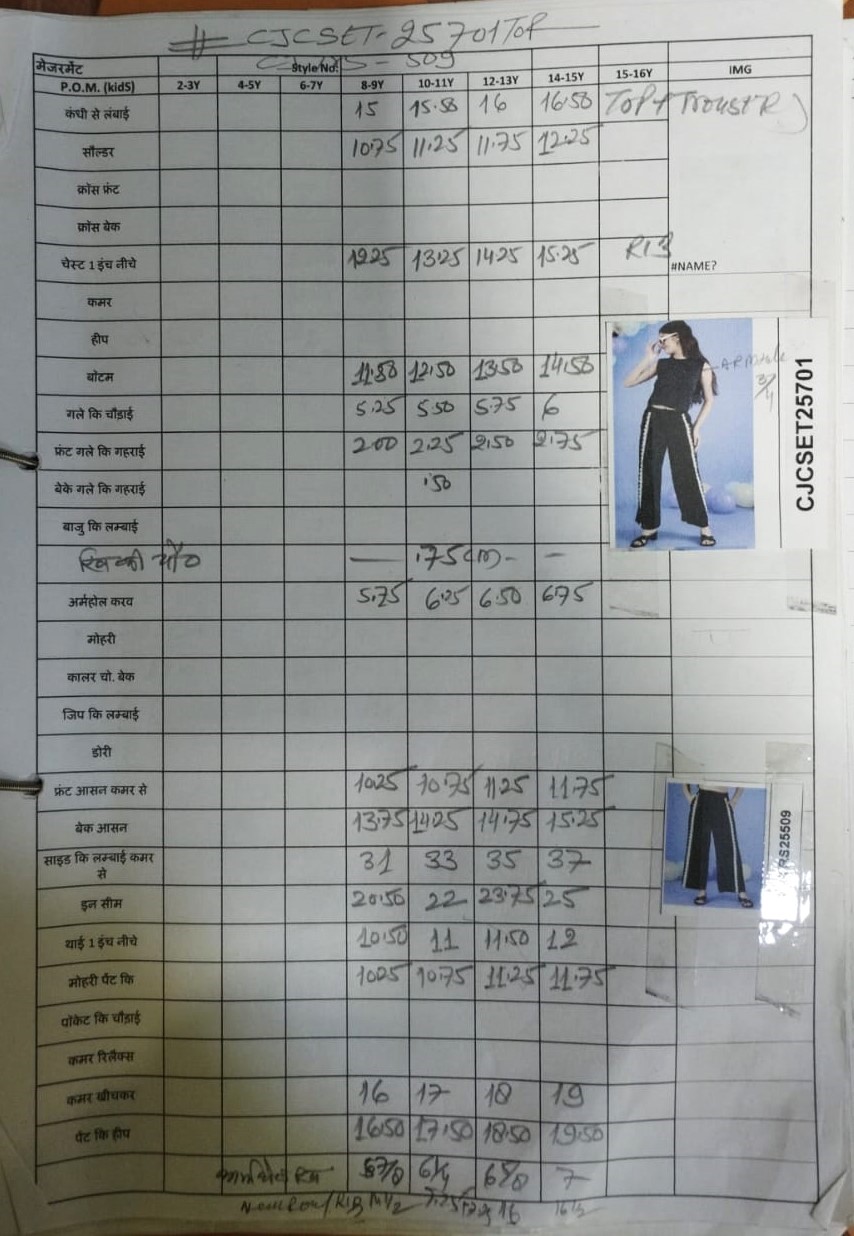 # CJCSET-25701 TOP
मेजरमेंट Style No: 509
P.O.M. (kidS) 2-3Y 4-5Y 6-7Y 8-9Y 10-11Y 12-13Y 14-15Y 15-16Y IMG
कंधी से लंबाई 15 15.50 16 16.50 TOP + TROUSER)
सौल्डर 10.75 11.25 11.75 12.25
क्रॉस फ्रंट
क्रॉस बेक
चेस्ट 1 इंच नीचे 12.25 13.25 14.25 15.25 RIB #NAME?
कमर
हीप
बोटम 11.50 12.50 13.50 14.50
गले कि चौड़ाई 5.25 5.50 5.75 6
फ्रंट गले कि गहराई 2.00 2.25 2.50 2.75
बेके गले कि गहराई .50
बाजु कि लम्बाई
— .75 — —
अर्महोल करव 5.75 6.25 6.50 6.75
मोहरी
कालर चो. बेक
जिप कि लम्बाई
डोरी
फ्रंट आसन कमर से 10.25 10.75 11.25 11.75
बेक आसन 13.75 14.25 14.75 15.25
साइड कि लम्बाई कमर से 31 33 35 37
इन सीम 20.50 22 23.75 25
थाई 1 इंच नीचे 10.50 11 11.50 12
मोहरी पेंट कि 10.25 10.75 11.25 11.75
पॉकेट कि चौड़ाई
कमर रिलैक्स
कमर खीचकर 16 17 18 19
पेंट कि हीप 16.50 17.50 18.50 19.50
6¼ 7
16
ARMhole
3/4
CJCSET25701
RS25509